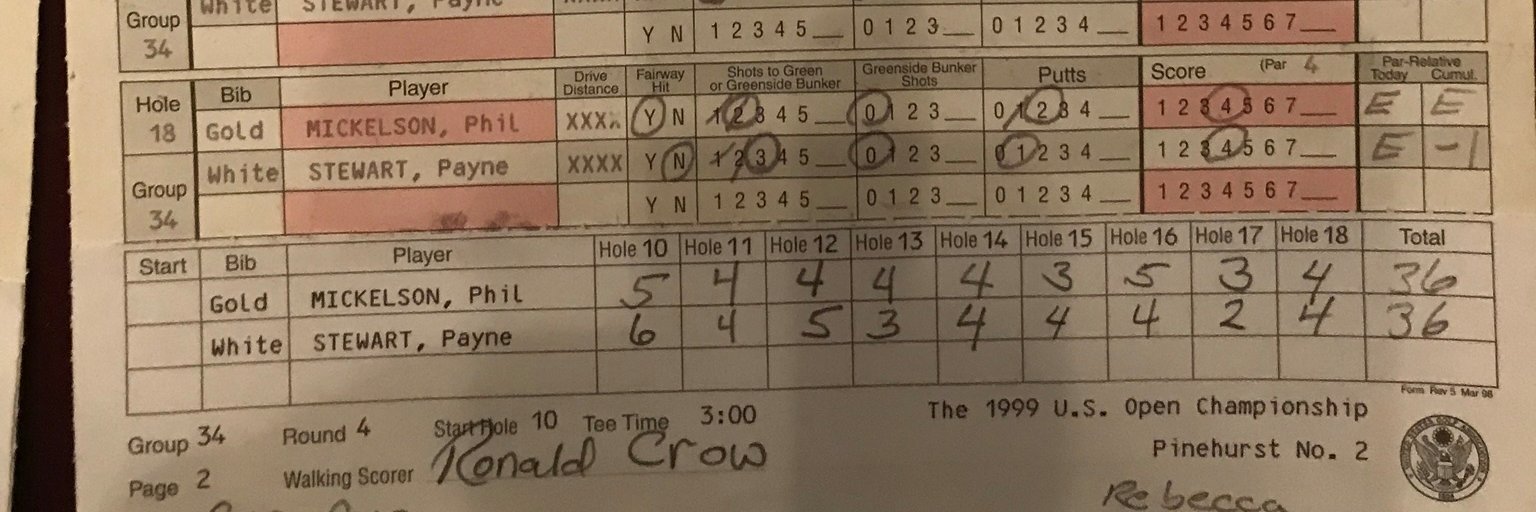 White STEWART, Payne
Group 34 Y N 1 2 3 4 5 __ 0 1 2 3 __ 0 1 2 3 4 __ 1 2 3 4 5 6 7 __
Hole 18 Bib Player Drive Distance Fairway Hit Shots to Green or Greenside Bunker Greenside Bunker Shots Putts Score (Par 4 Par-Relative Today Cumul.
Gold MICKELSON, Phil XXXX Y N 1 2 3 4 5 __ 0 1 2 3 __ 0 1 2 3 4 __ 1 2 3 4 5 6 7 __ E E
White STEWART, Payne XXXX Y N 1 2 3 4 5 __ 0 1 2 3 __ 0 1 2 3 4 __ 1 2 3 4 5 6 7 __ E -1
Group 34 Y N 1 2 3 4 5 __ 0 1 2 3 __ 0 1 2 3 4 __ 1 2 3 4 5 6 7 __
Start Bib Player Hole 10 Hole 11 Hole 12 Hole 13 Hole 14 Hole 15 Hole 16 Hole 17 Hole 18 Total
Gold MICKELSON, Phil 5 4 4 4 4 3 5 3 4 36
White STEWART, Payne 6 4 5 3 4 4 4 2 4 36
Form Rev 5 Mar 98
Group 34 Round 4 Start Hole 10 Tee Time 3:00 The 1999 U.S. Open Championship
Page 2 Walking Scorer Ronald Crow Pinehurst No. 2
Rebecca